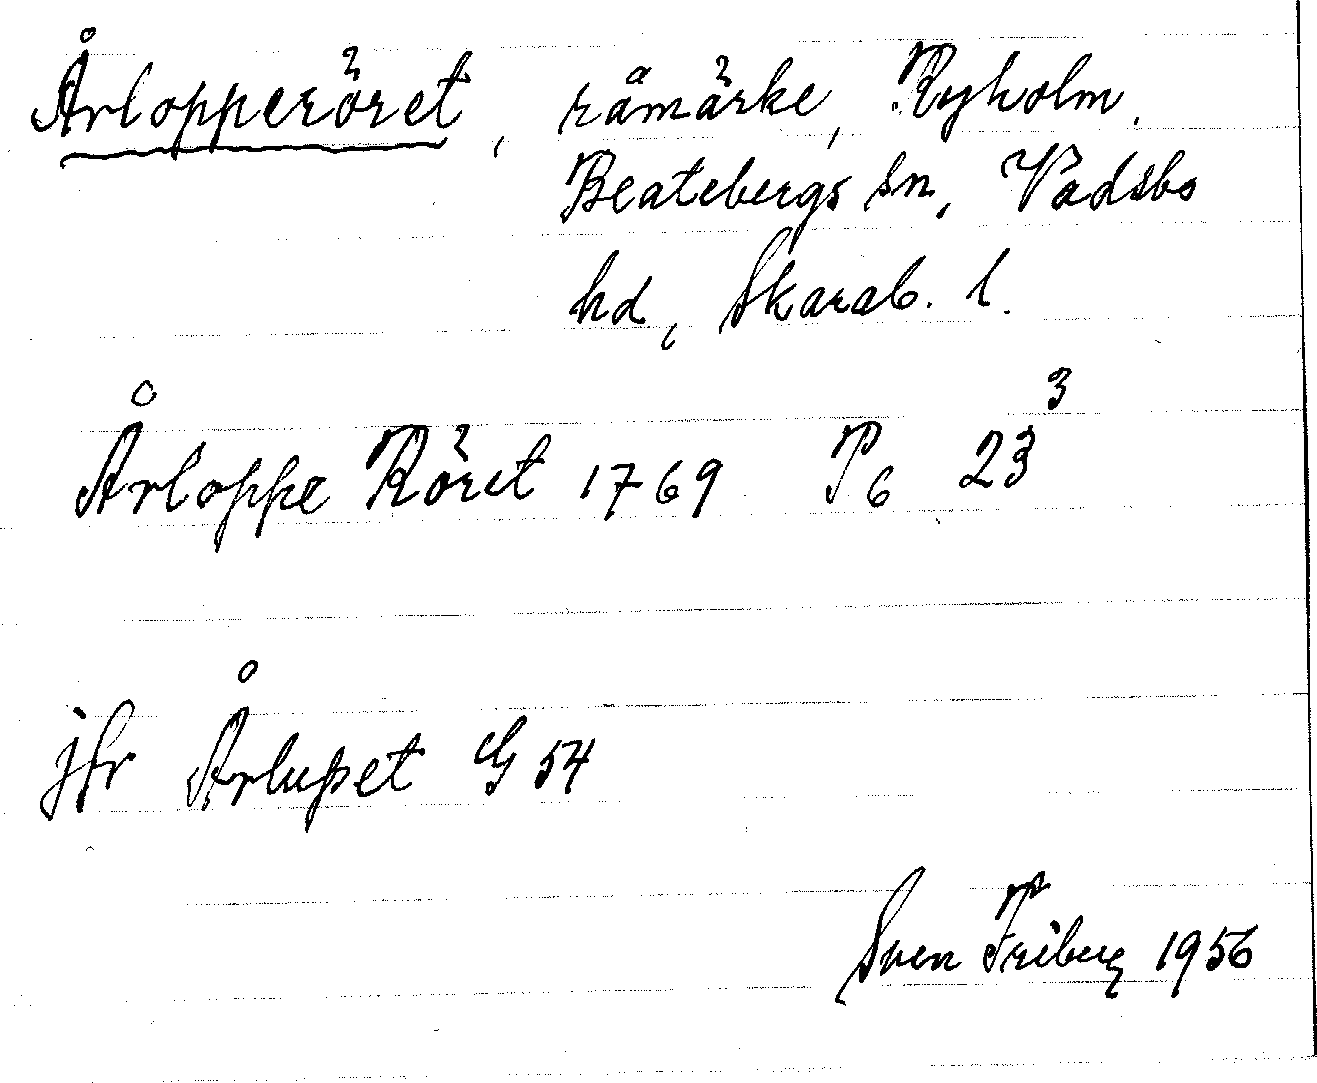 Årlopperöret, råmärke, Ryholm.
Beatebergs sn, Vadsbo
hd, Skarab. l.
Årloppe Röret 1769 P6 23³
jfr Årlupet G 54
Sven Friberg 1956